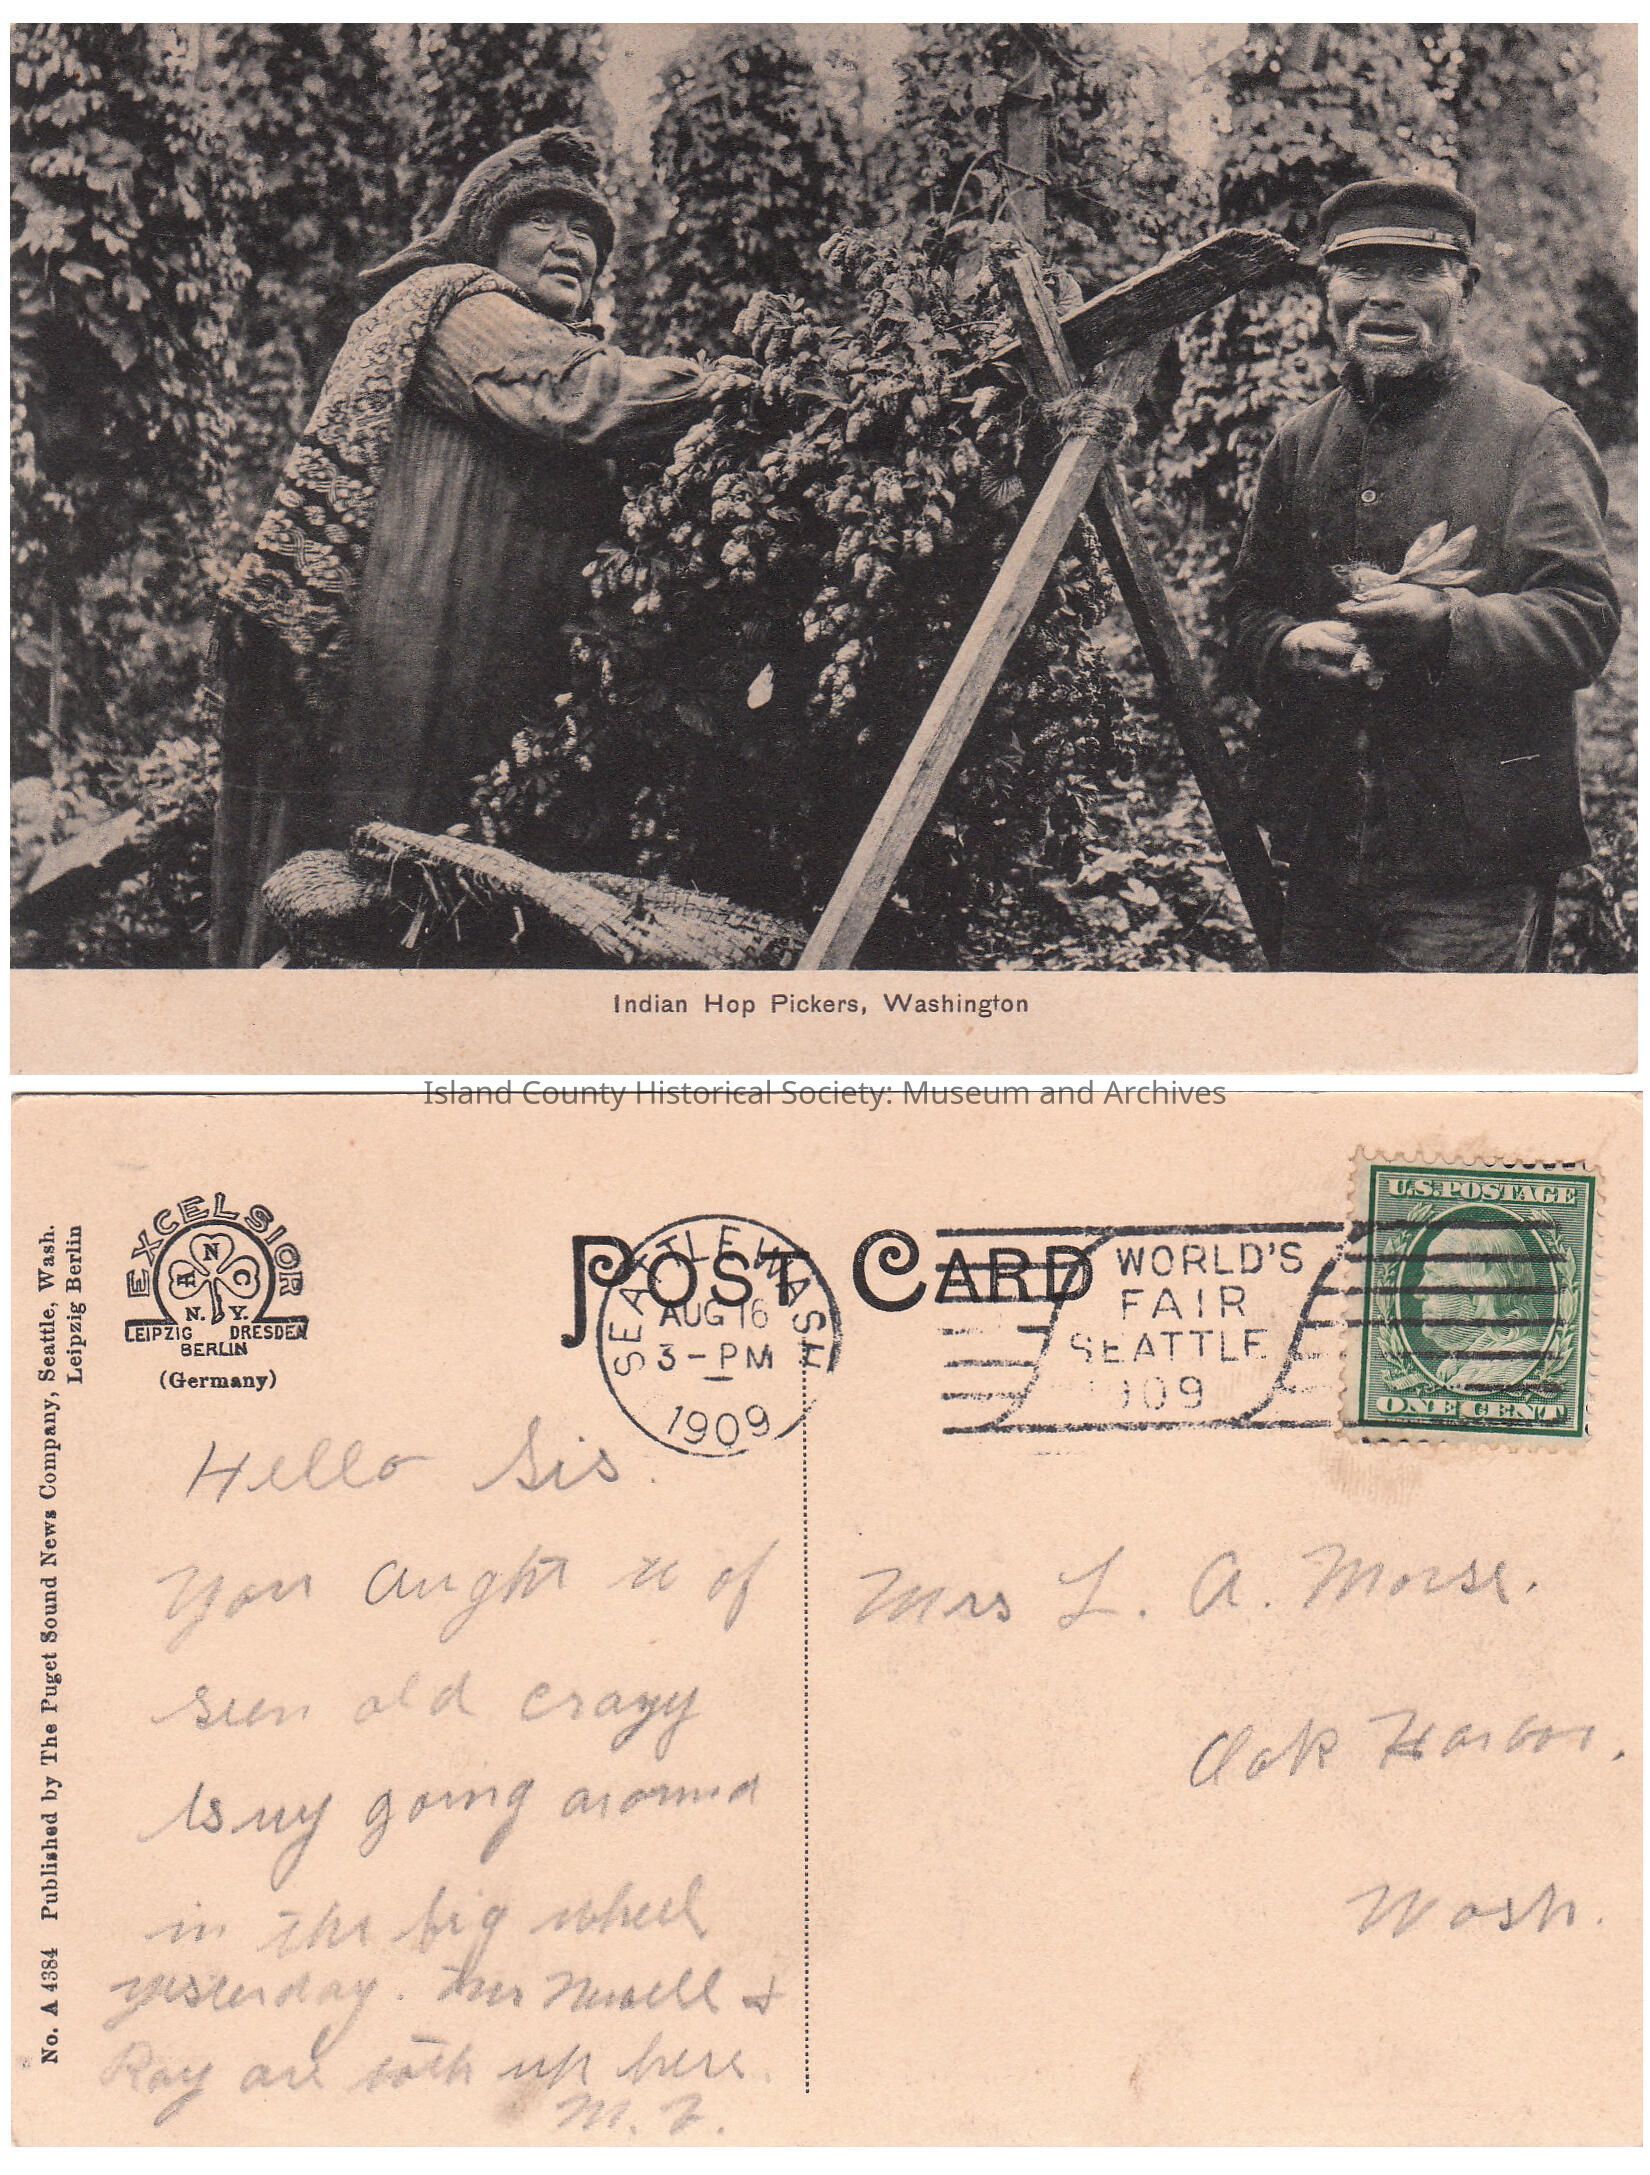 Indian Hop Pickers, Washington
Island County Historical Society: Museum and Archives
No. A 4384 Published by The Puget Sound News Company, Seattle, Wash.
Leipzig Berlin
EXCELSIOR
A N C
N. Y.
LEIPZIG DRESDEN
BERLIN
(Germany)
POST CARD
SEATTLE, WASH
AUG 16
3-PM
1909
WORLD'S
FAIR
SEATTLE
1909
U.S. POSTAGE
ONE CENT
Hello Sis.
You aught to of
seen old crazy
going around
in the big wheel
yesterday. Mrs &
Ray are both up here.
M. F.
Mrs L. A. Morse.
Oak Harbor.
Wash.